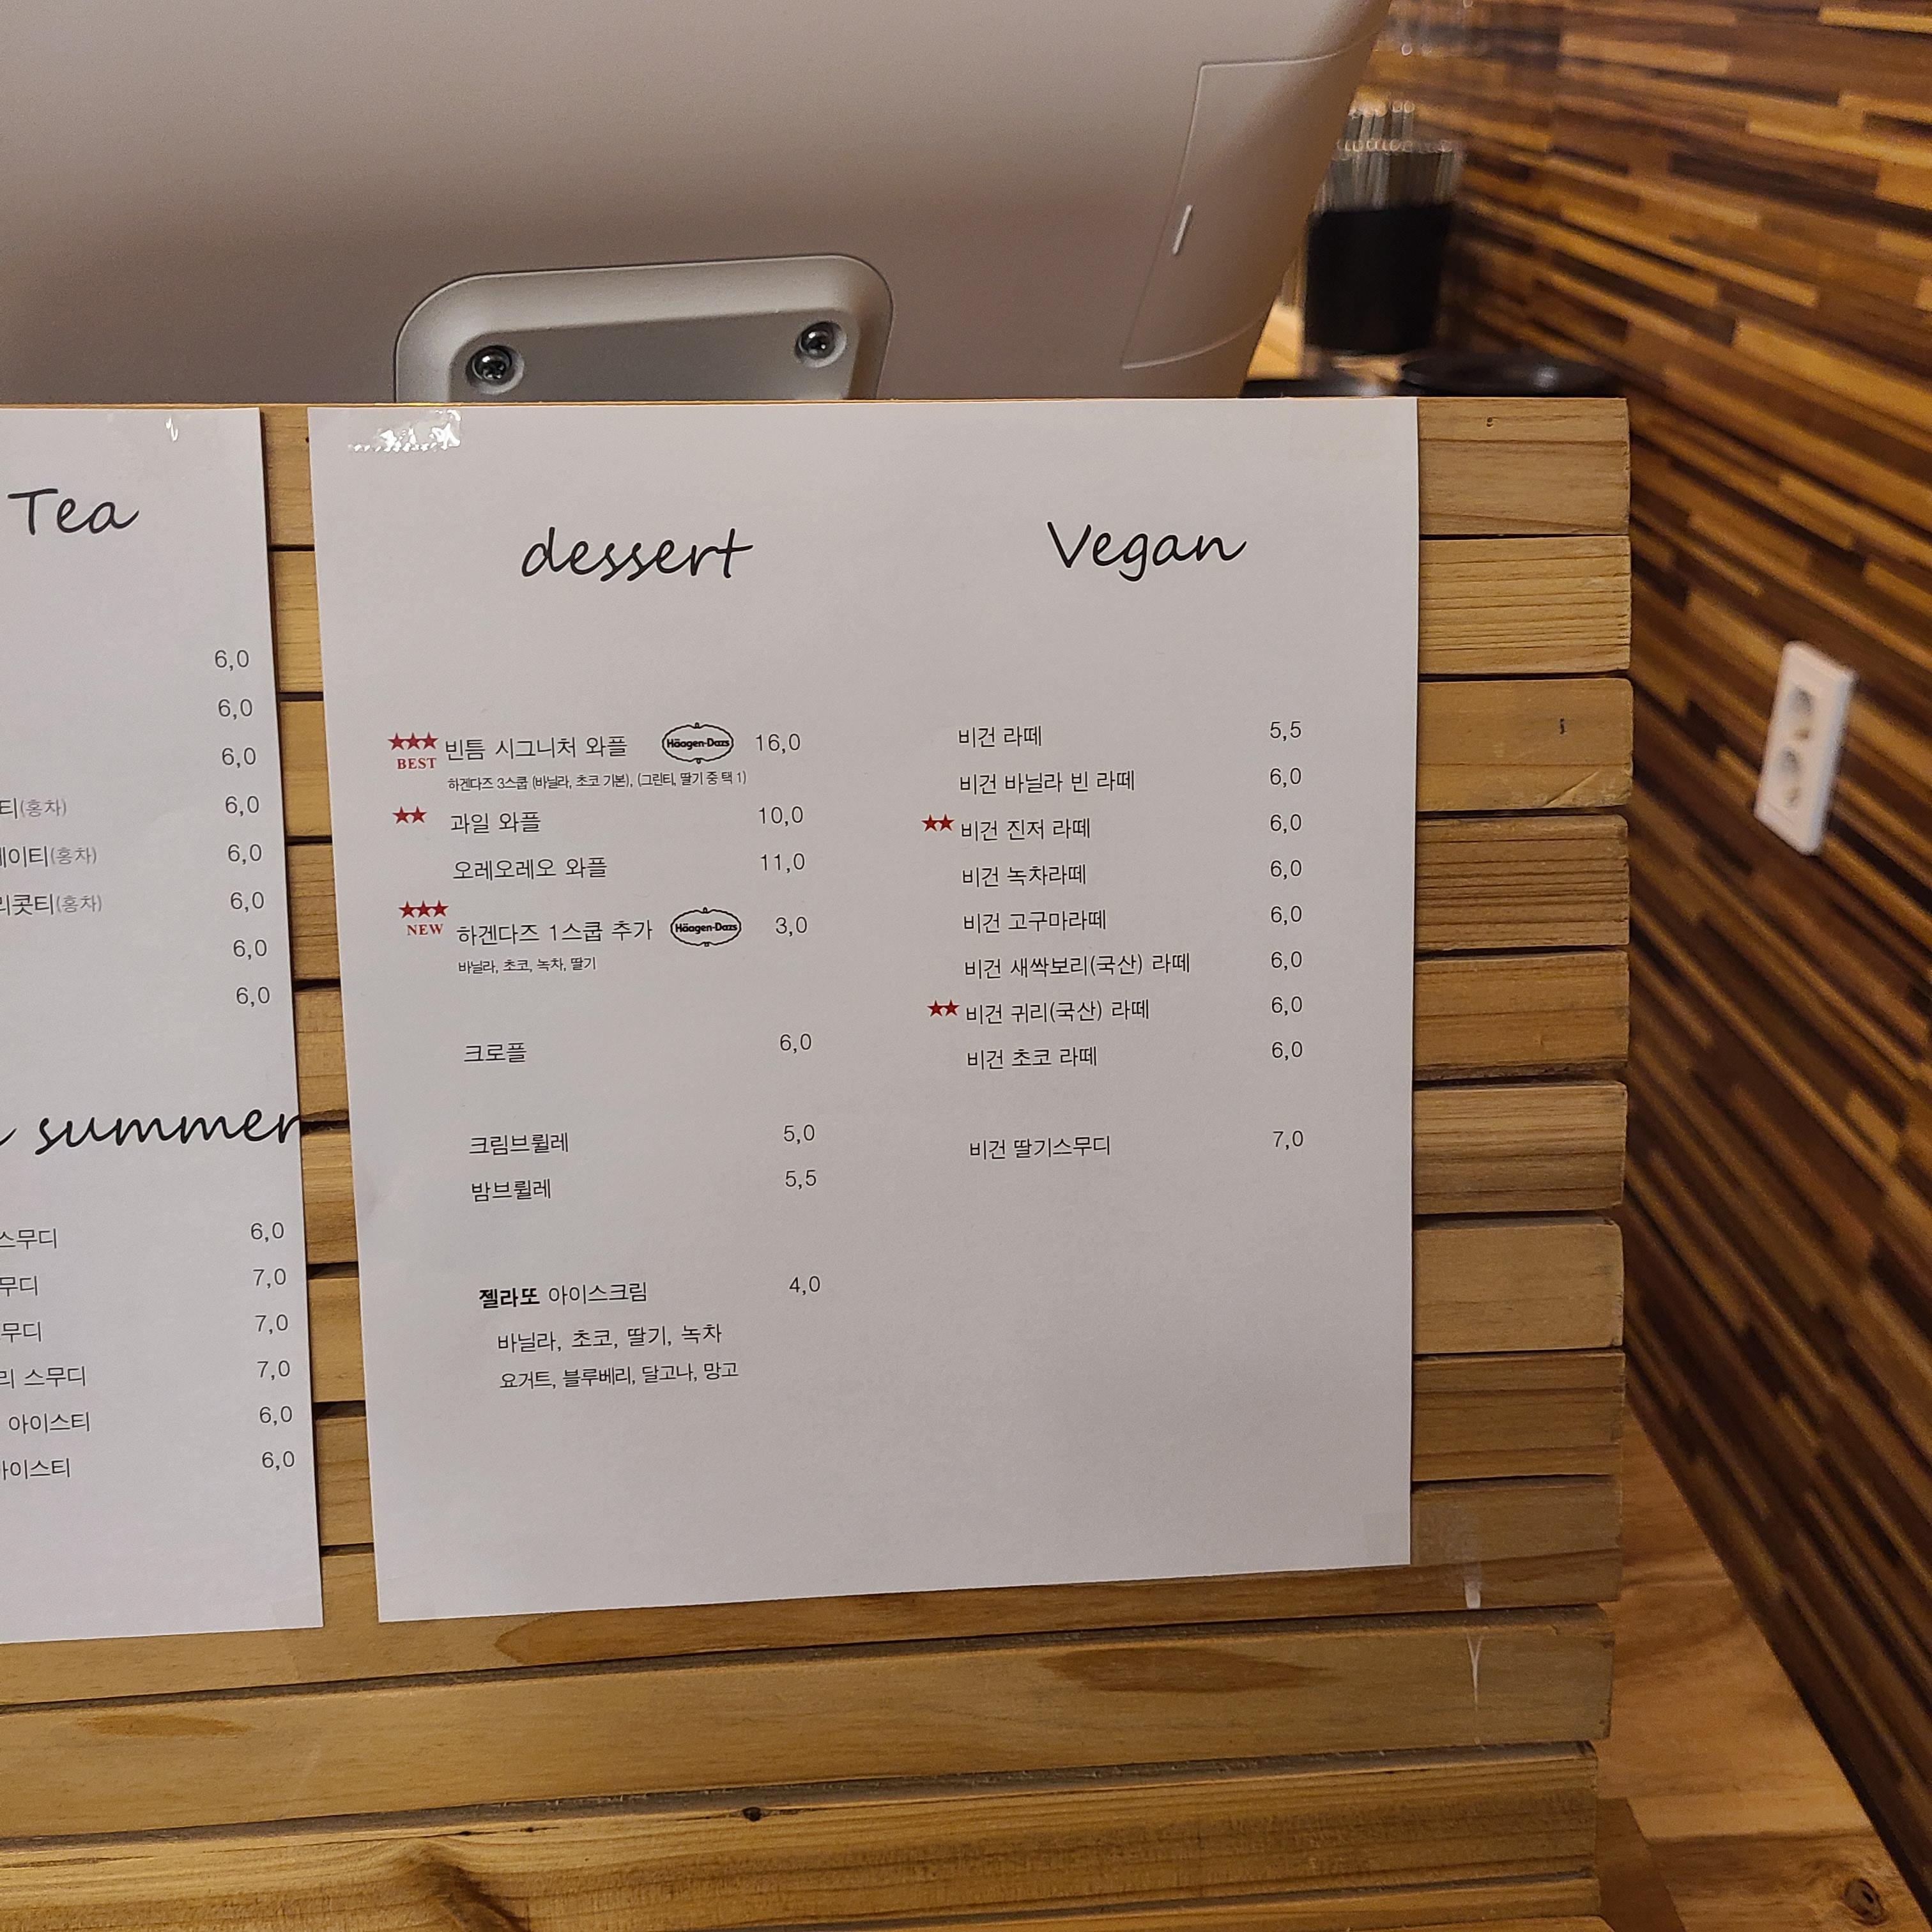 Tea
6,0
6,0
6,0
티(홍차) 6,0
이티(홍차) 6,0
리콧티(홍차) 6,0
6,0
6,0
summer
스무디 6,0
무디 7,0
무디 7,0
리 스무디 7,0
아이스티 6,0
아이스티 6,0
dessert
★★★ 빈틈 시그니처 와플 Häagen-Dazs 16,0
BEST
하겐다즈 3스쿱 (바닐라, 초코 기본), (그린티, 딸기 중 택 1)
★★ 과일 와플 10,0
오레오레오 와플 11,0
★★★ 하겐다즈 1스쿱 추가 Häagen-Dazs 3,0
NEW
바닐라, 초코, 녹차, 딸기
크로플 6,0
크림브륄레 5,0
밤브륄레 5,5
젤라또 아이스크림 4,0
바닐라, 초코, 딸기, 녹차
요거트, 블루베리, 달고나, 망고
Vegan
비건 라떼 5,5
비건 바닐라 빈 라떼 6,0
★★ 비건 진저 라떼 6,0
비건 녹차라떼 6,0
비건 고구마라떼 6,0
비건 새싹보리(국산) 라떼 6,0
★★ 비건 귀리(국산) 라떼 6,0
비건 초코 라떼 6,0
비건 딸기스무디 7,0